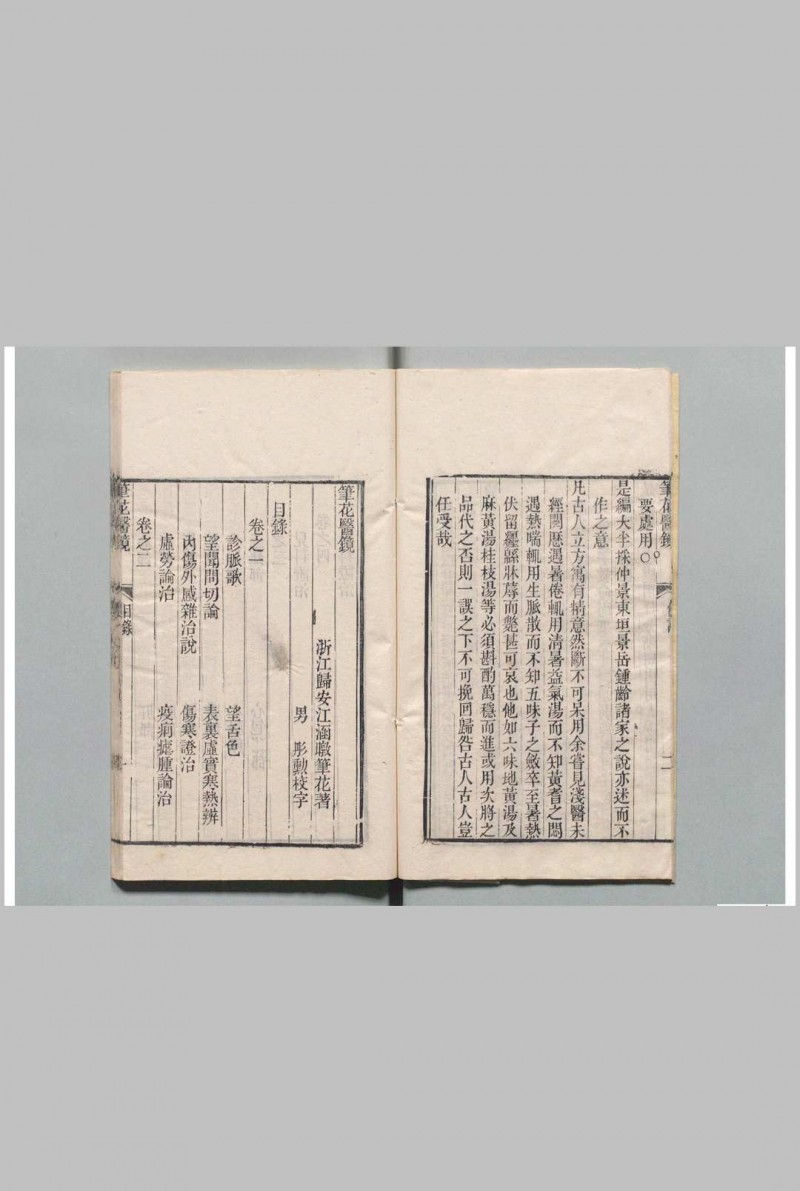 筆花醫鏡
二
要處用○○
是編大半採仲景東垣景岳鍾齡諸家之說亦述而不
作之意
凡古人立方寓有精意然斷不可呆用余嘗見淺醫未
經閱歷遇暑倦輒用清暑益氣湯而不知黃耆之悶
遇熱喘輒用生脈散而不知五味子之斂卒至暑熱
伏留纏緜牀蓐而斃甚可哀也他如六味地黃湯及
麻黃湯桂枝湯等必須斟酌萬穩而進或用次將之
品代之否則一誤之下不可挽回歸咎古人古人豈
任受哉
筆花醫鏡
浙江歸安江涵暾筆花著
男 彤勲校字
目錄
卷之一
診脈歌 望舌色
望聞問切論 表裏虛實寒熱辨
內傷外感雜治說 傷寒證治
虛勞論治 疫痢瘧腫論治
卷之二
筆花醫鏡
目錄
一